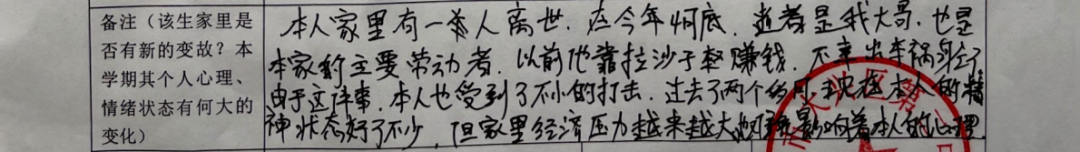 备注（该生家里是
否有新的变故？本
学期其个人心理、
情绪状态有何大的
变化）
本人家里有一亲人离世，在今年何底，逝者是我大哥，也是
本家的主要劳动者，以前他靠拉沙子车赚钱，不幸出车祸
由于这件事，本人也受到了不小的打击，过去了两个多月，现在本人的精
神状态好了不少，但家里经济压力越来越大，影响着本人的心理